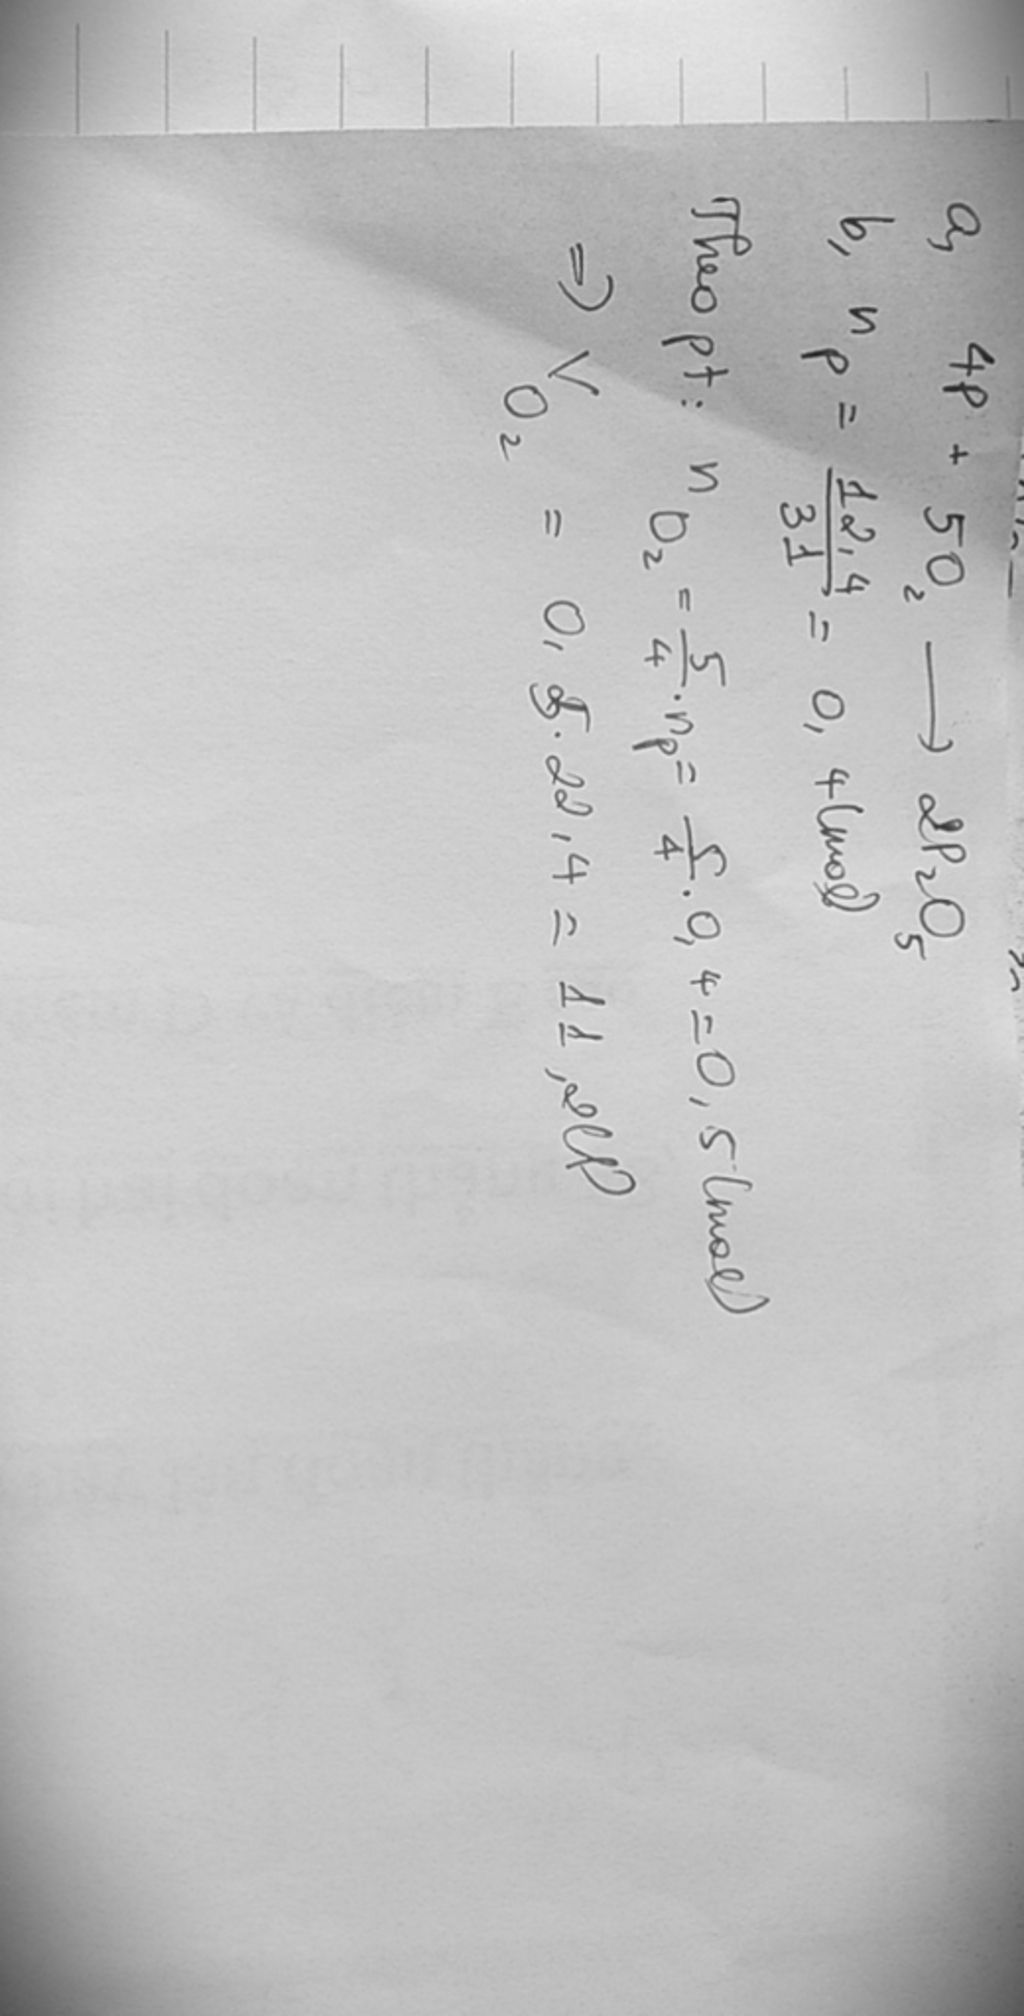 a, 4P + 5O₂ ⟶ 2P₂O₅
b, nₚ = 12,4/31 = 0,4 (mol)
Theo pt: n O₂ = 5/4 . nₚ = 5/4 . 0,4 = 0,5 (mol)
=> V O₂ = 0,5 . 22,4 = 11,2 (l)